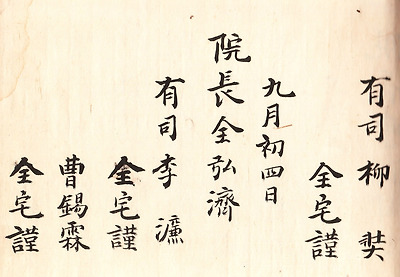 有司柳奘
全宅謹
九月初四日
院長全弘濟
有司李濂
全宅謹
曹錫霖
全宅謹